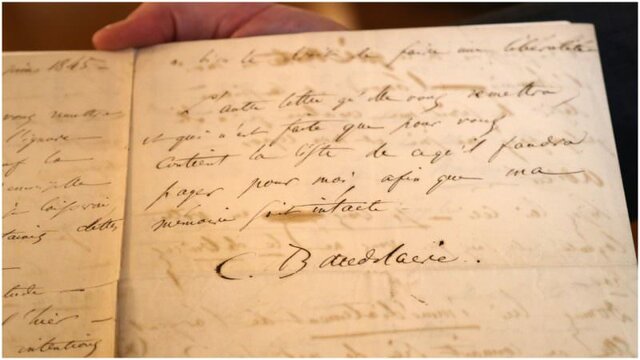 juin 1845 -
vous
l'ignore
la
dettes
d'hier -
intentions
le droit de faire une libéralité
L'autre lettre qu'elle vous remettra
et qui n'est faite que pour vous
contient la liste de ce qu'il faudra
payer pour moi afin que ma
mémoire soit intacte
C. Baudelaire.